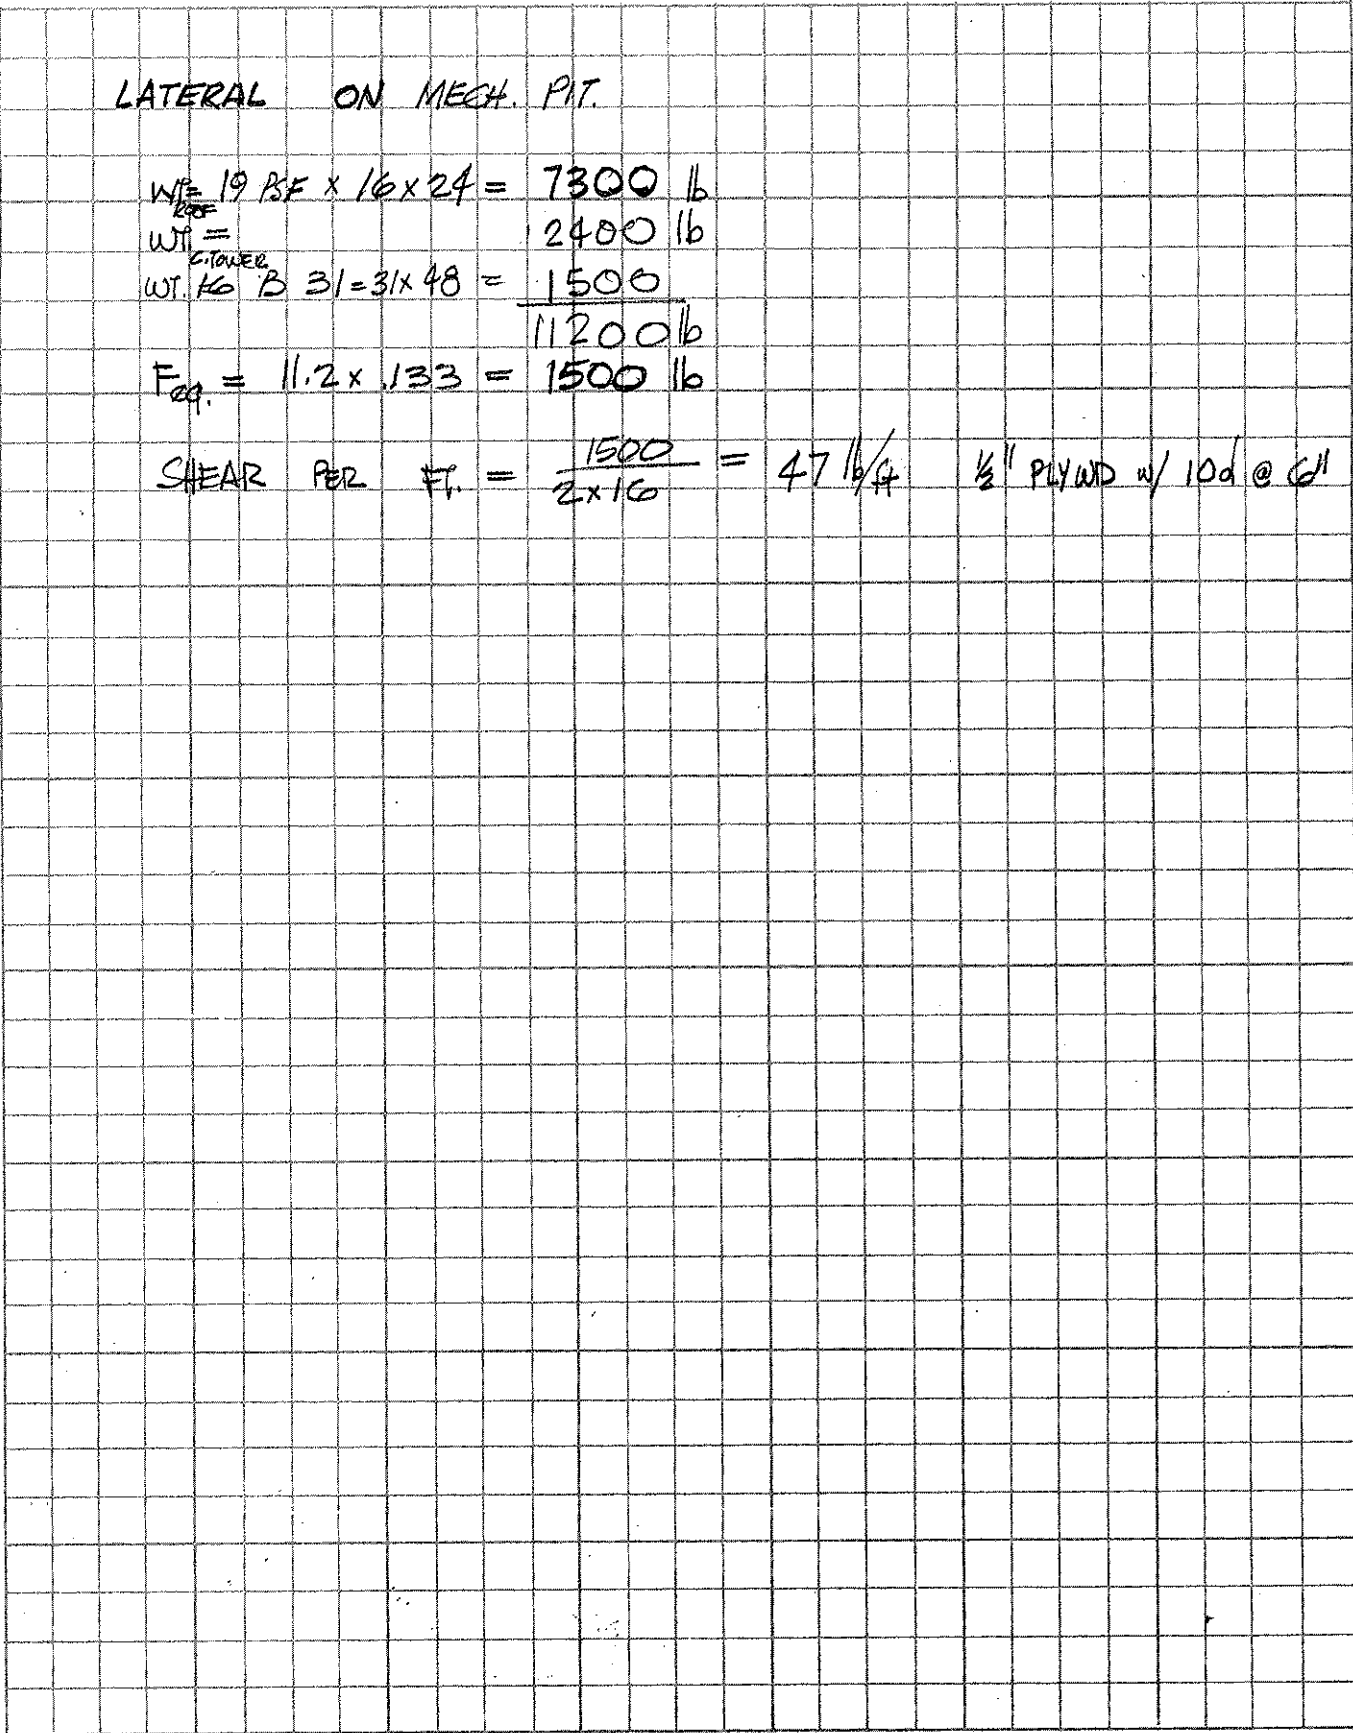 LATERAL ON MECH. PIT.
WT. ROOF = 19 PSF x 16 x 24 = 7300 lb
WT. C.TOWER = 2400 lb
WT. 16 B 31 = 31 x 48 = 1500
11200 lb
Feq. = 11.2 x .133 = 1500 lb
SHEAR PER FT. = 1500 / 2x16 = 47 lb/ft 1/2" PLYWD w/ 10d @ 6"